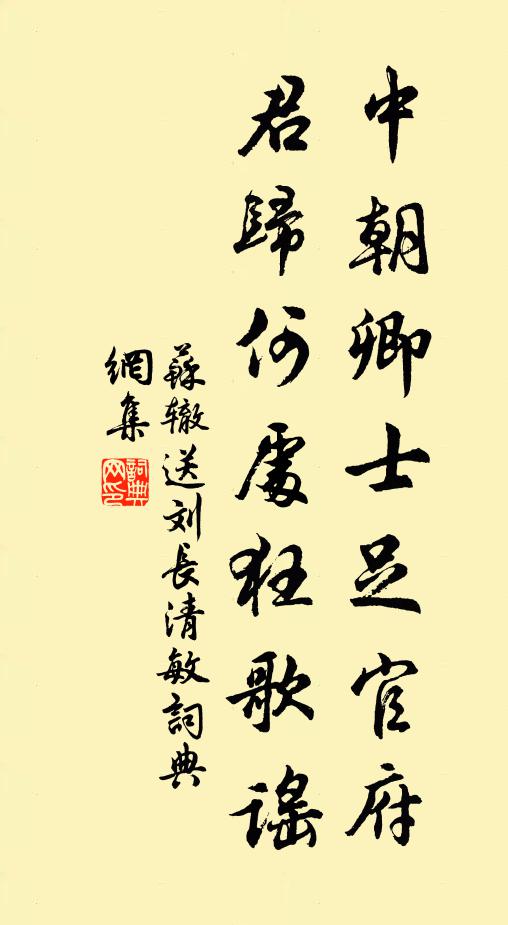 中朝卿士足官府
君歸何處狂歌謠
蘇辙送刘長清敏詞典
網集
詞典網印